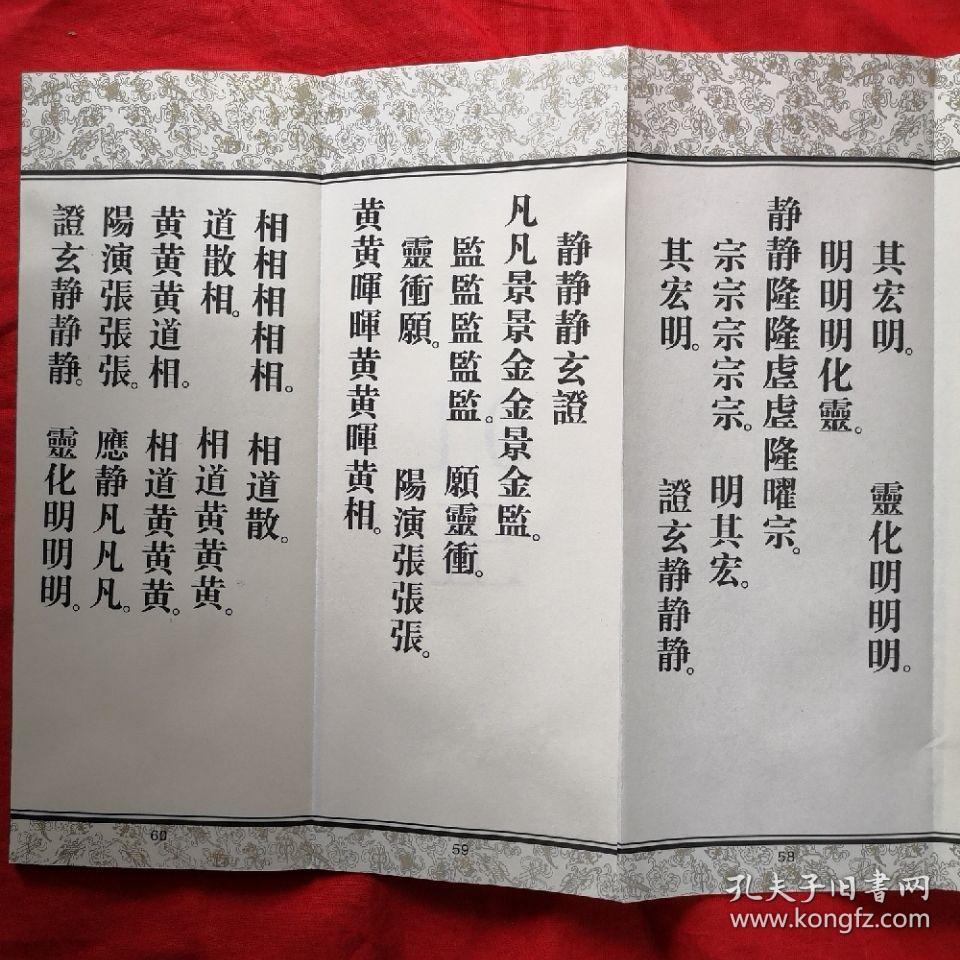 其宏明。 靈化明明明。
明明明化靈。
静静隆隆虗虗隆曜宗。
宗宗宗宗宗。 明其宏。
其宏明。 證玄静静静。
58
静静静玄證
凡凡景景金金景金監。
監監監監監。 願靈衝。
靈衝願。 陽演張張張。
黄黄暉暉黄黄暉黄相。
59
相相相相相。 相道散。
道散相。 相道黄黄黄。
黄黄黄道相。 相道黄黄黄。
陽演張張張。 應静凡凡凡。
證玄静静静。 靈化明明明。
60
孔夫子旧書网
www.kongfz.com